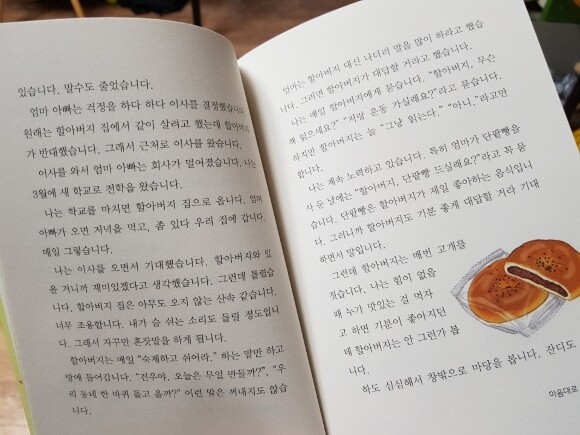 있습니다. 말수도 줄었습니다.
엄마 아빠는 걱정을 하다 하다 이사를 결정했습니다.
원래는 할아버지 집에서 같이 살려고 했는데 할아버지
가 반대했습니다. 그래서 근처로 이사를 왔습니다.
이사를 와서 엄마 아빠는 회사가 멀어졌습니다. 나는
3월에 새 학교로 전학을 왔습니다.
나는 학교를 마치면 할아버지 집으로 옵니다. 엄마
아빠가 오면 저녁을 먹고, 좀 있다 우리 집에 갑니다.
매일 그렇습니다.
나는 이사를 오면서 기대했습니다. 할아버지와 있
을 거니까 재미있겠다고 생각했습니다. 그런데 틀렸습
니다. 할아버지 집은 아무도 오지 않는 산속 같습니다.
너무 조용합니다. 내가 숨 쉬는 소리도 들릴 정도입니
다. 그래서 자꾸만 혼잣말을 하게 됩니다.
할아버지는 매일 “숙제하고 쉬어라.” 하는 말만 하고
방에 들어갑니다. “건우야, 오늘은 무얼 만들까?”, “우
리 동네 한 바퀴 돌고 올까?” 이런 말은 꺼내지도 않습
니다.
엄마는 할아버지 대신 나더러 말을 많이 하라고 했습
니다. 그러면 할아버지가 대답할 거라고 했습니다.
나는 매일 할아버지에게 묻습니다. “할아버지, 무슨
책 읽으세요?” “저랑 운동 가실래요?”라고 묻습니다.
하지만 할아버지는 늘 “그냥 읽는다.” “아니.”라고만
합니다.
나는 계속 노력하고 있습니다. 특히 엄마가 단팥빵을
사 둔 날에는 “할아버지, 단팥빵 드실래요?”라고 꼭 묻
습니다. 단팥빵은 할아버지가 제일 좋아하는 음식입니
다. 그러니까 할아버지도 기분 좋게 대답할 거라 기대
하면서 말입니다.
그런데 할아버지는 매번 고개를
젓습니다. 나는 힘이 없을
때 누가 맛있는 걸 먹자
고 하면 기분이 좋아지던
데 할아버지는 안 그런가 봅
니다.
하도 심심해서 창밖으로 마당을 봅니다. 잔디도
마음대로